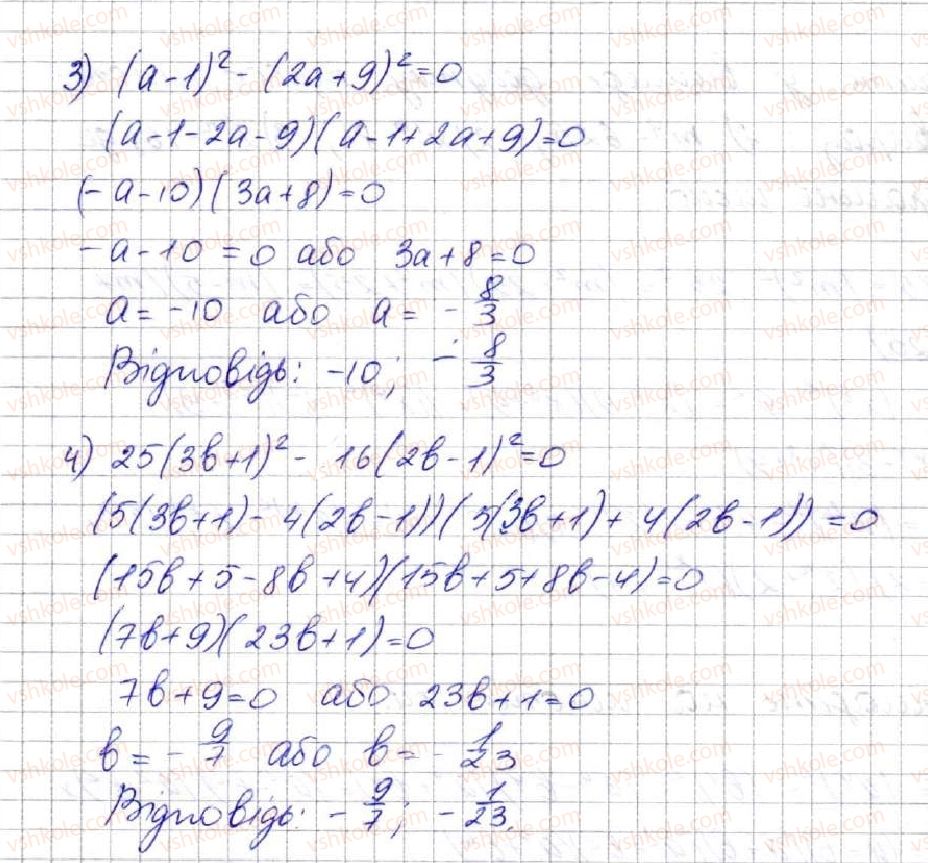 3) (a-1)² - (2a+9)² = 0
(a-1-2a-9)(a-1+2a+9)=0
(-a-10)(3a+8)=0
-a-10=0 або 3a+8=0
a=-10 або a= -8/3
Відповідь: -10; -8/3
4) 25(3b+1)² - 16(2b-1)²=0
(5(3b+1)-4(2b-1))(5(3b+1)+4(2b-1))=0
(15b+5-8b+4)(15b+5+8b-4)=0
(7b+9)(23b+1)=0
7b+9=0 або 23b+1=0
b=-9/7 або b=-1/23
Відповідь: -9/7; -1/23.
vshkole.com